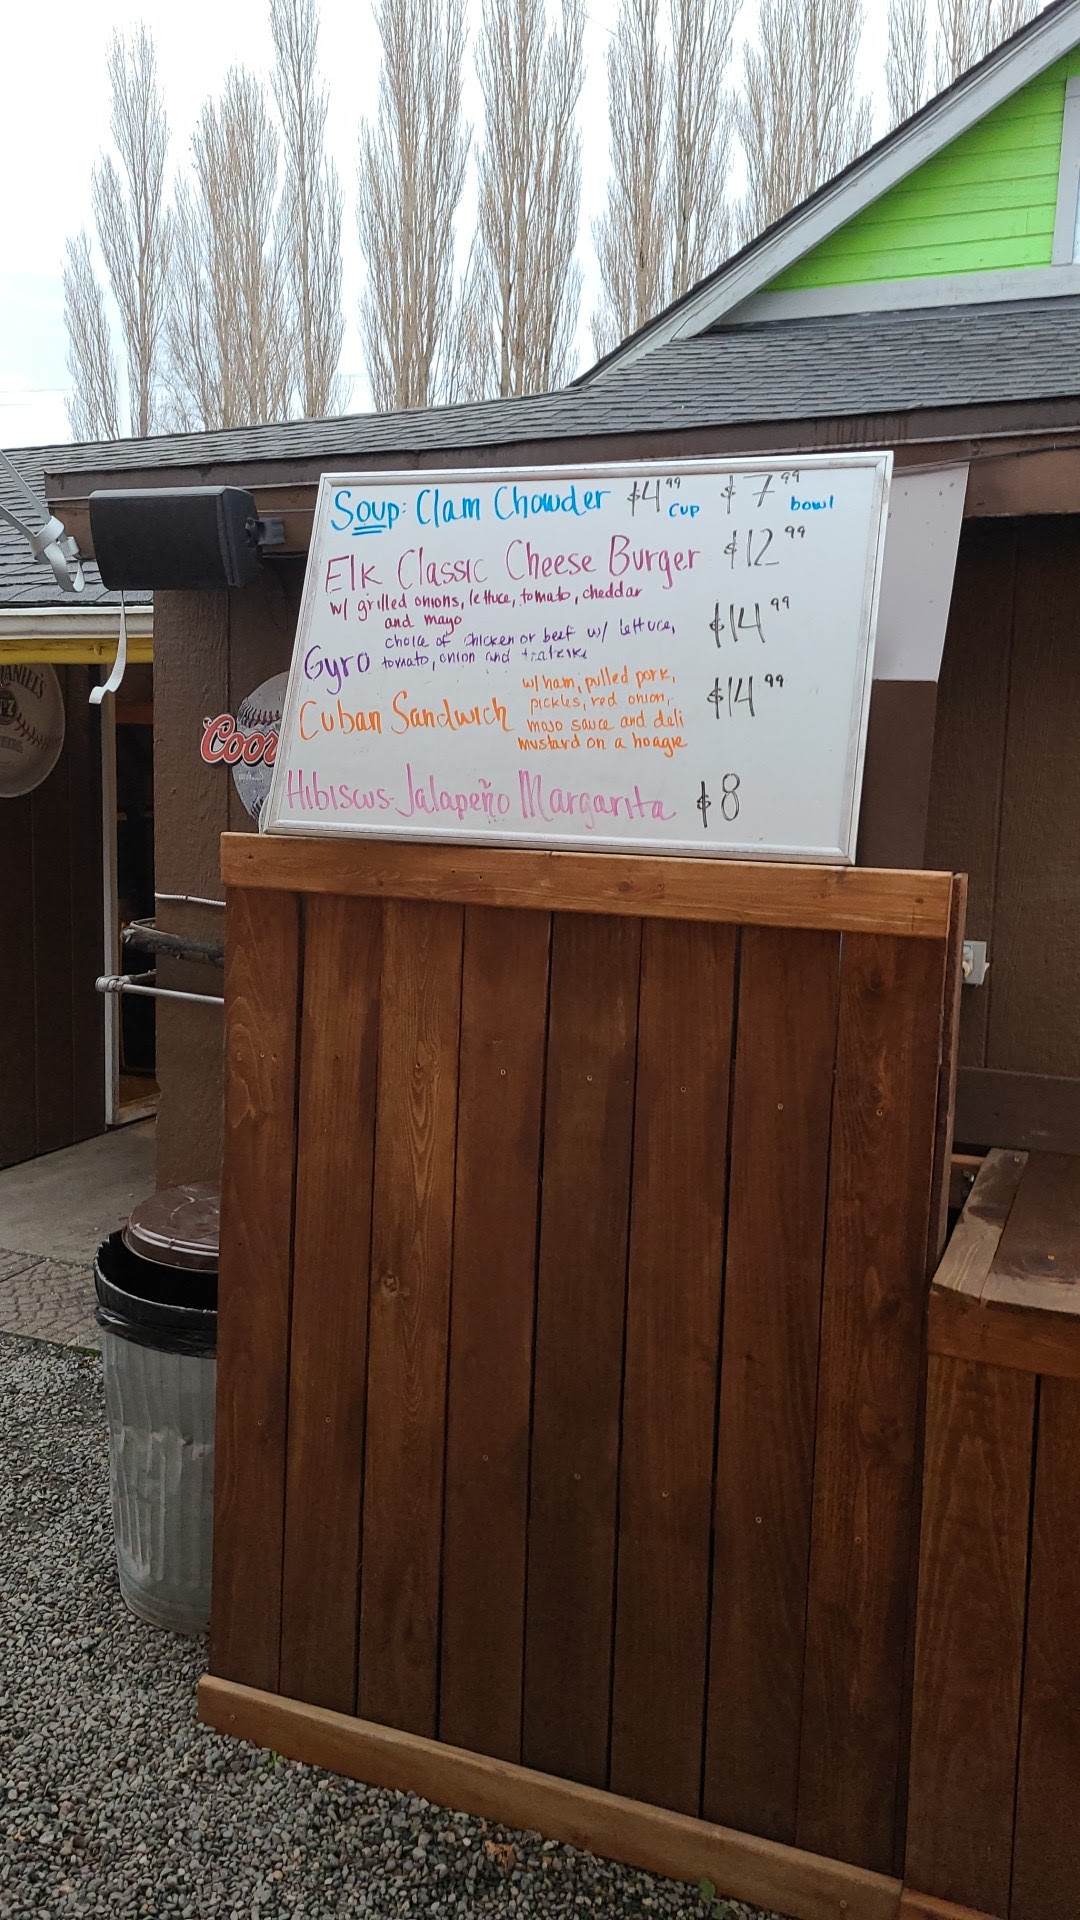 Soup: Clam Chowder $4.99 cup $7.99 bowl
Elk Classic Cheese Burger $12.99
w/ grilled onions, lettuce, tomato, cheddar
and mayo
choice of chicken or beef w/ lettuce, $14.99
Gyro tomato, onion and
w/ ham, pulled pork,
pickles, red onion, $14.99
Cuban Sandwich mojo sauce and deli
mustard on a hoagie
Hibiscus-Jalapeño Margarita $8
Coor